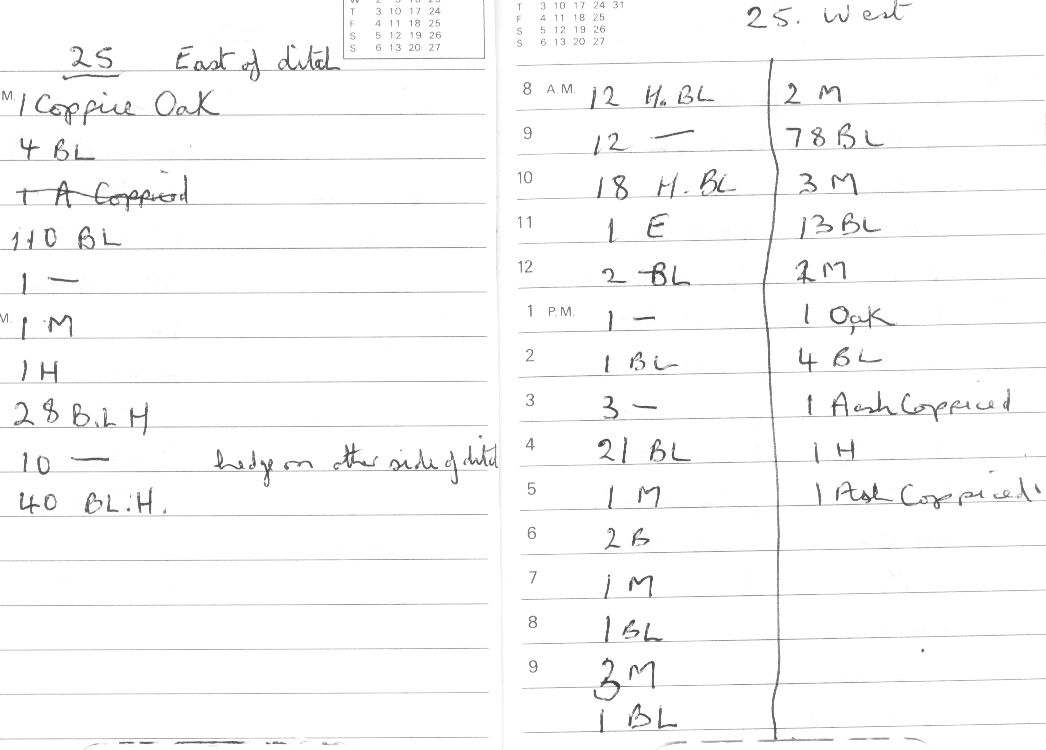 W 2 9 16 23
T 3 10 17 24
F 4 11 18 25
S 5 12 19 26
S 6 13 20 27
25 East of ditch
M. 1 Coppice Oak
4 BL
1 A Coppiced
110 BL
1 —
M. 1 M
1 H
28 B.L H
10 — hedge on other side of ditch
40 BL.H.
T 3 10 17 24 31
F 4 11 18 25
S 5 12 19 26
S 6 13 20 27
25. West
8 A.M. 12 H.BL 2 M
9 12 — 78 BL
10 18 H.BL 3 M
11 1 E 13 BL
12 2 BL 2 M
1 P.M. 1 — 1 Oak
2 1 BL 4 BL
3 3 — 1 Aash Coppiced
4 21 BL 1 H
5 1 M 1 Ash Coppiced
6 2 B
7 1 M
8 1 BL
9 3 M
1 BL